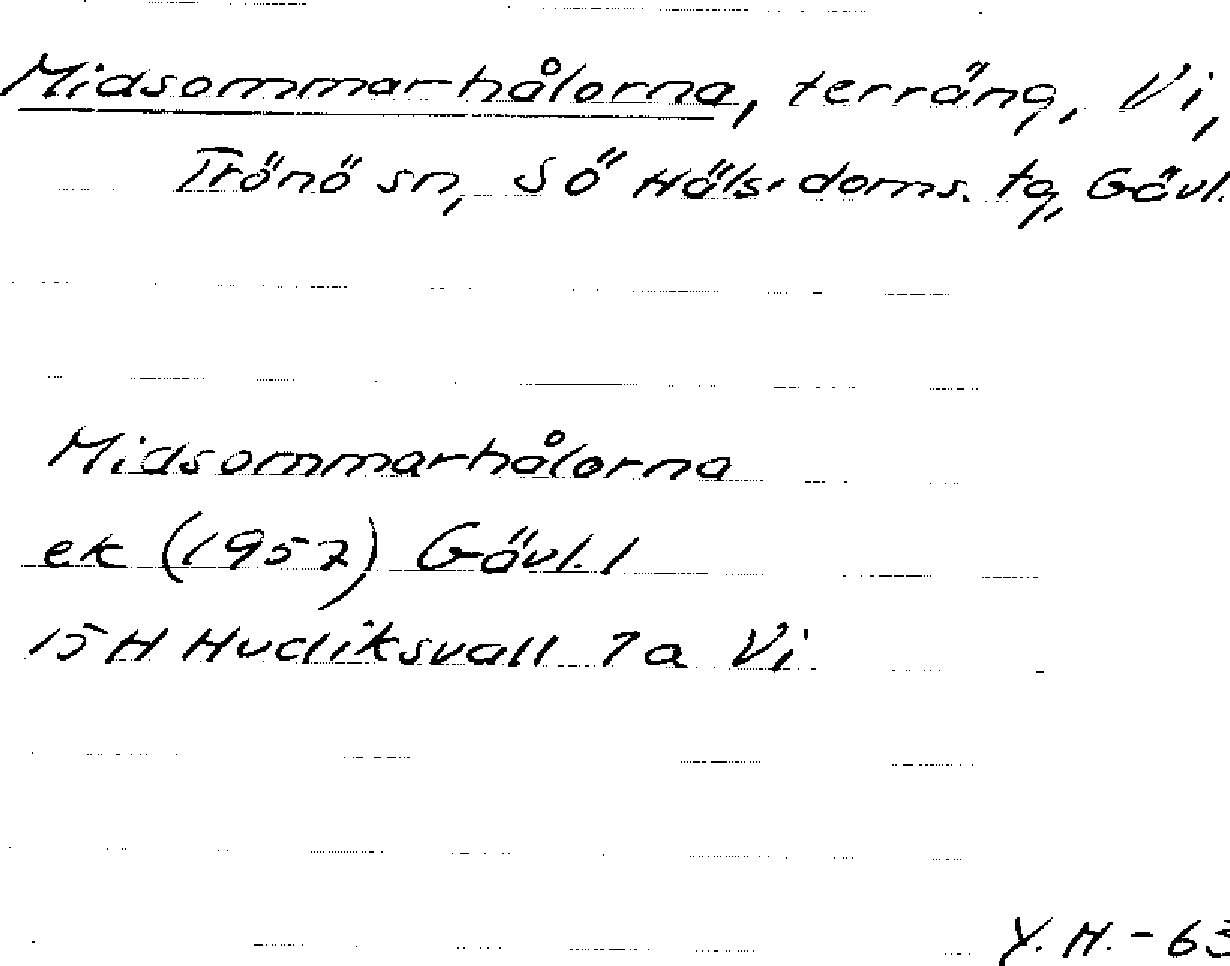 Midsommarhålorna, terräng, Vi,
Trönö sn, S ö Häls. doms. tg, Gävl.
Midsommarhålorna
ek (1957) Gävl. l
15 H Hudiksvall 7a Vi
Y. H. - 63